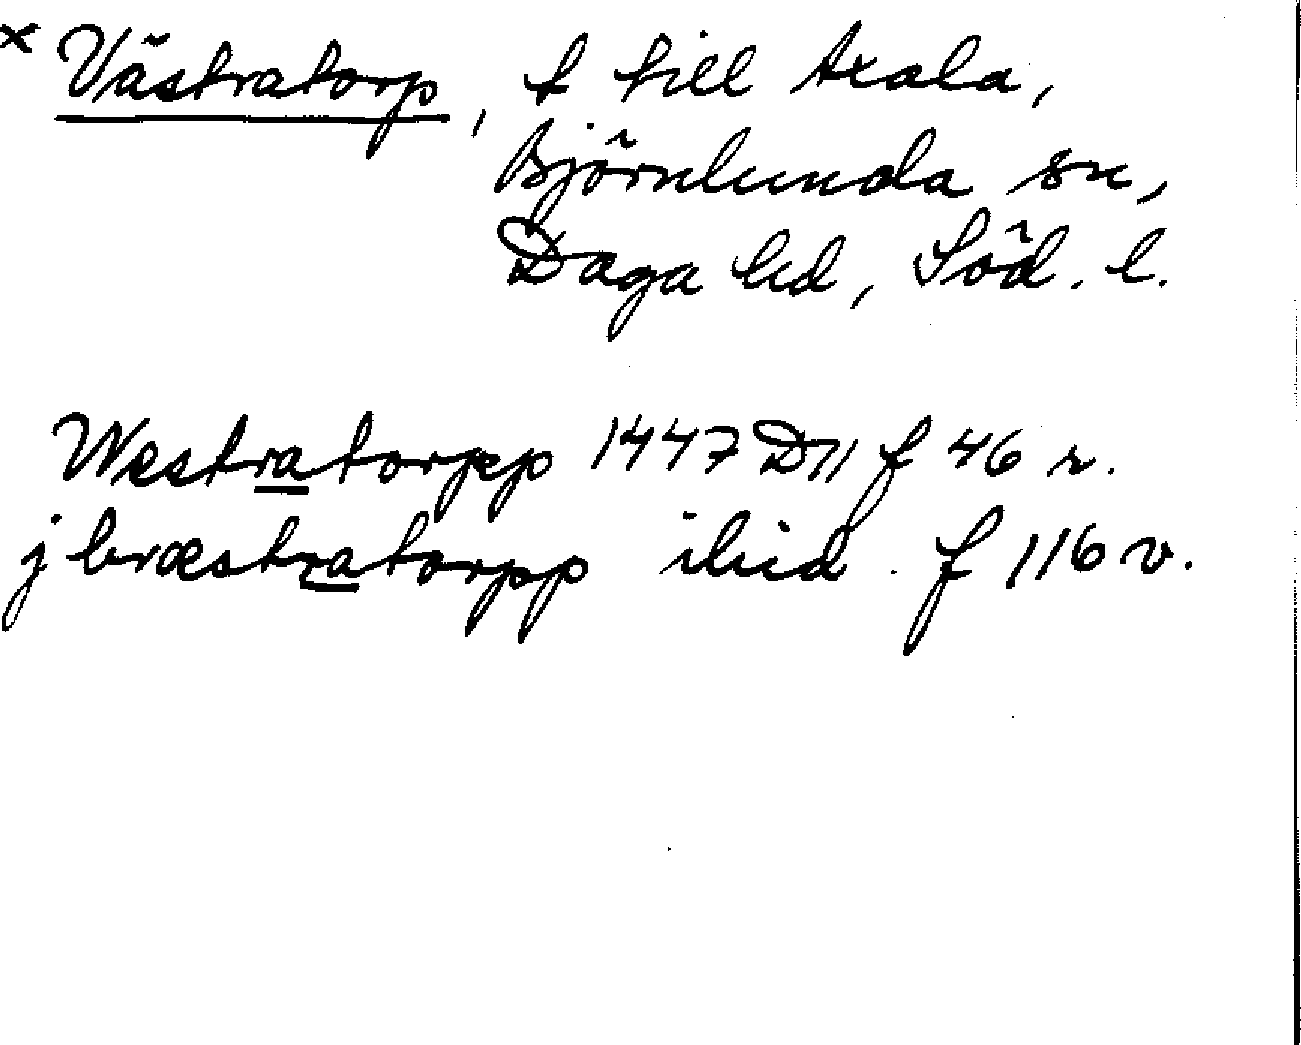 × Västratorp, t till Axala,
Björnlunda sn,
Daga hd, Söd. l.
Westratorpp 1447 D11 f 46 r.
j bræstratorpp ibid. f 116 v.